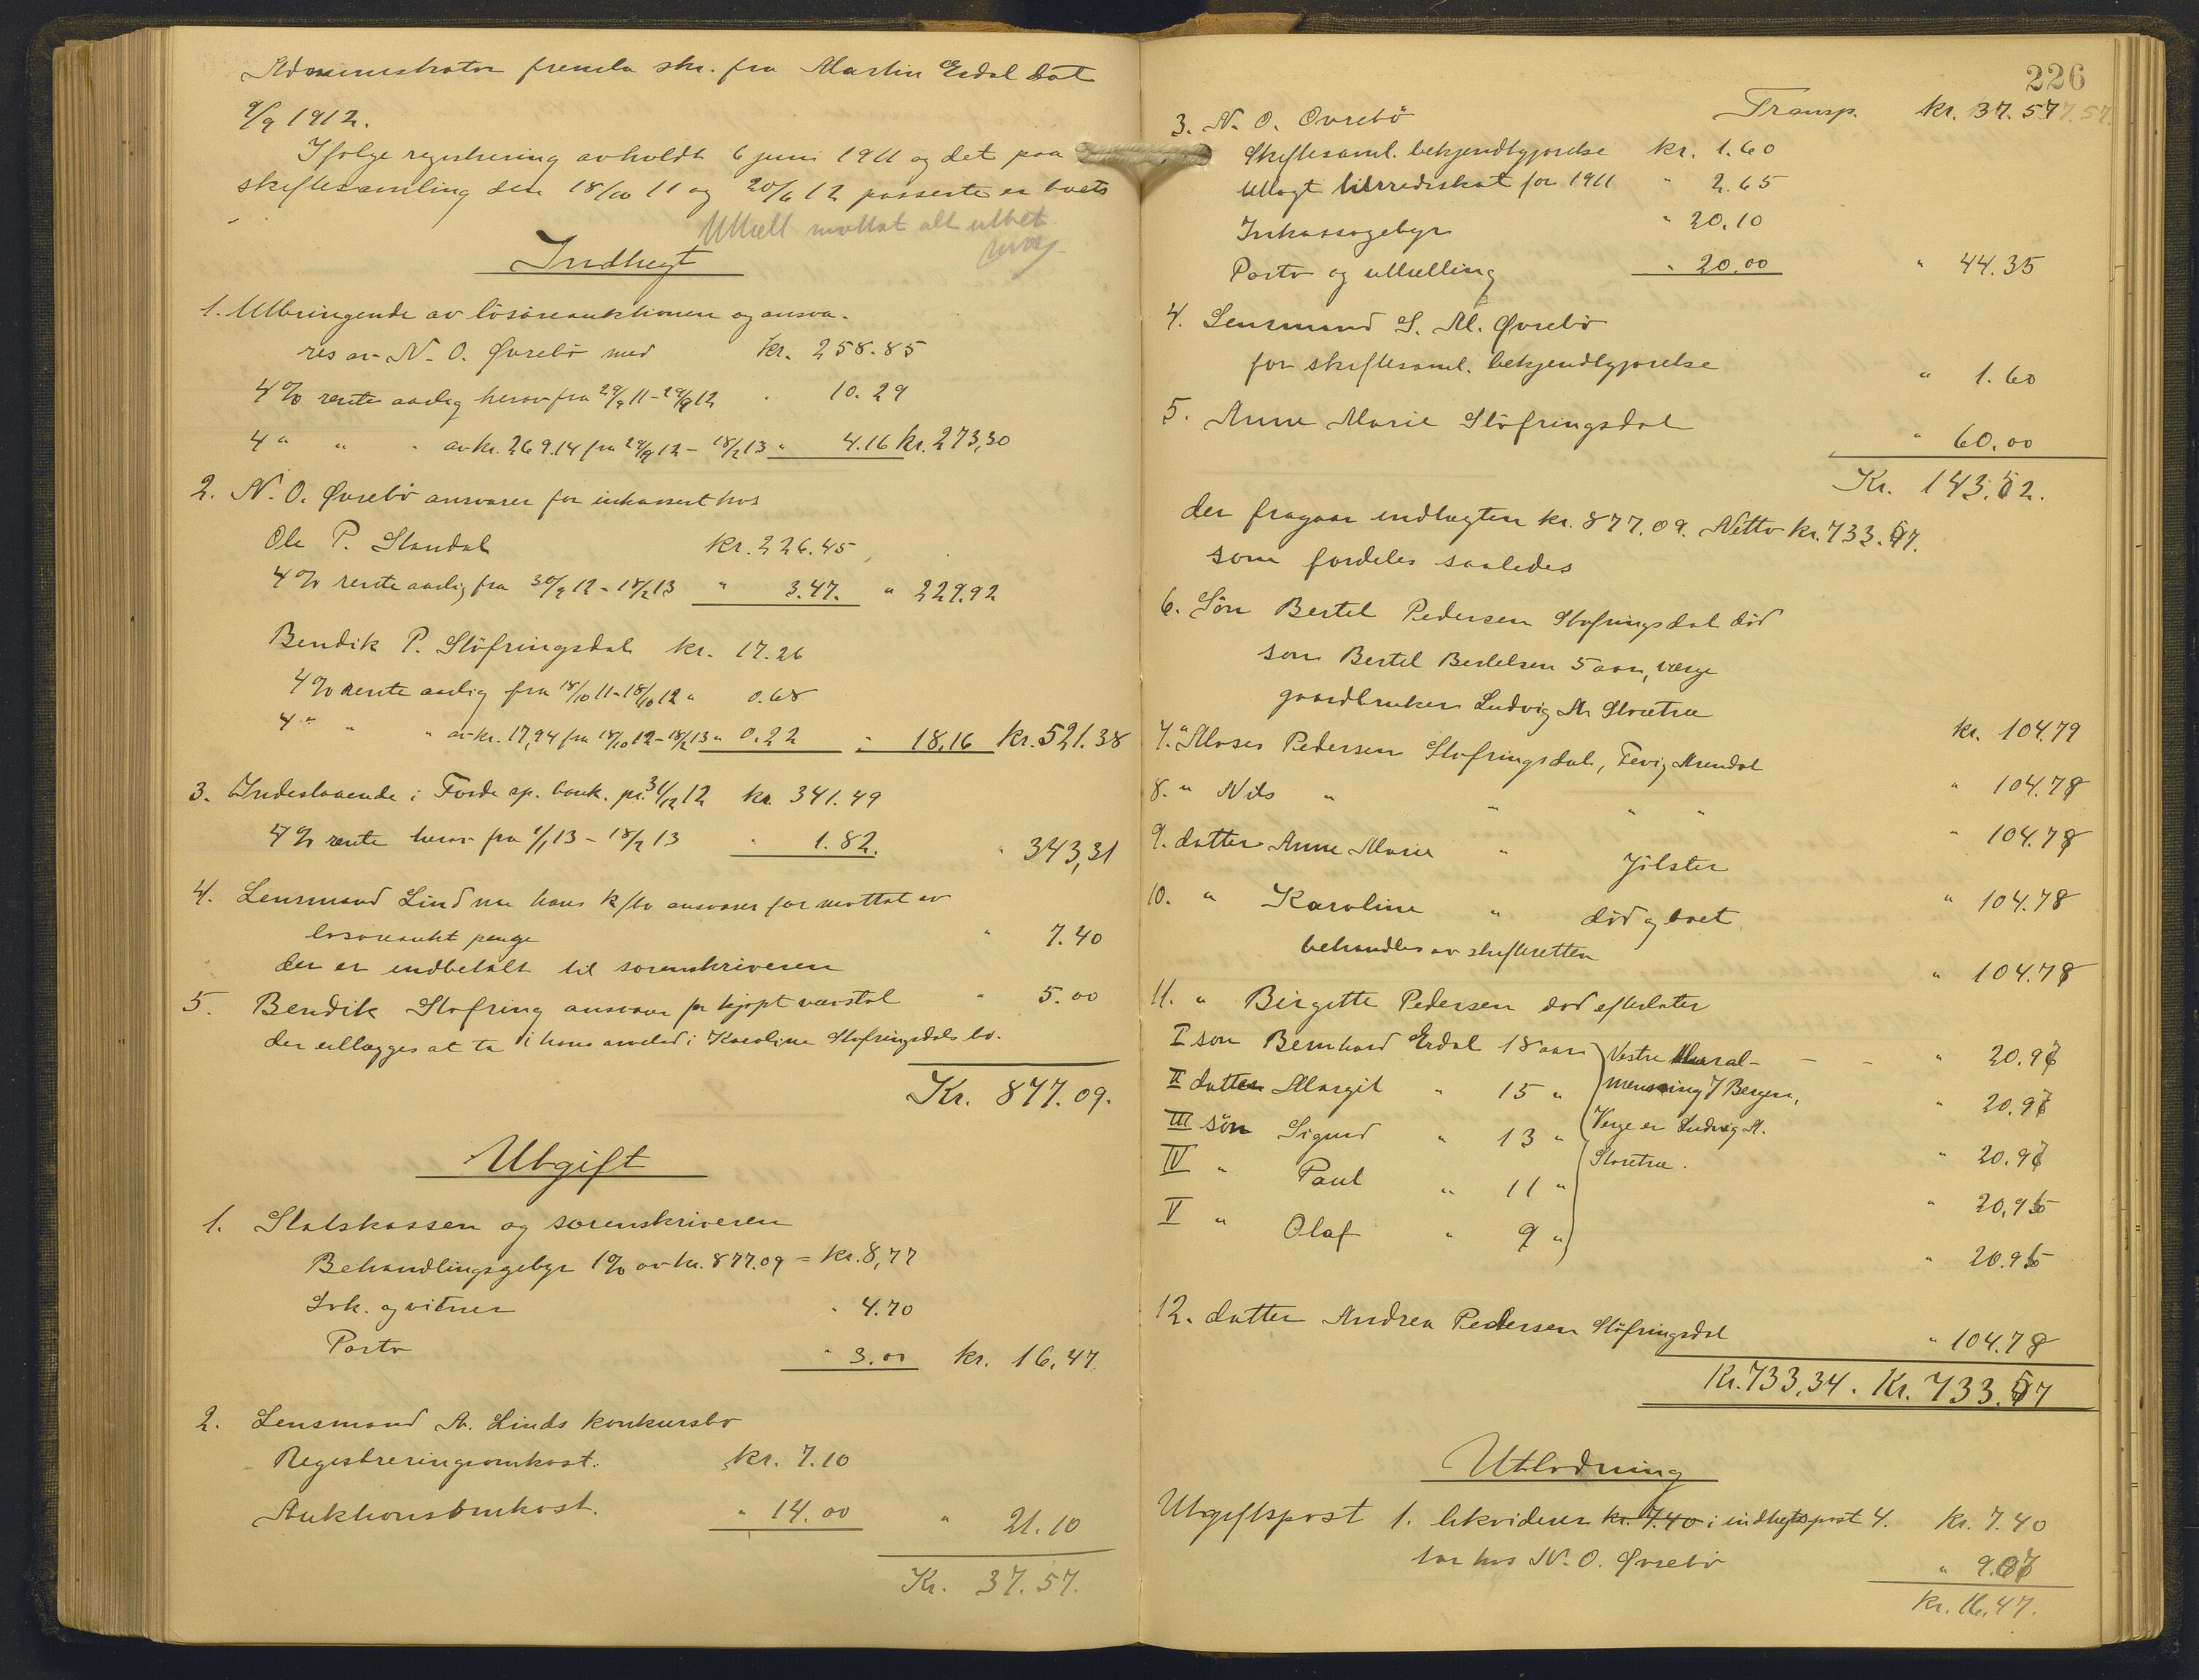 Administrator fremla skr. fra Martin Erdal dat
9/9 1912.
Ifølge registrering avholdt 6 juni 1911 og det paa
skiftesamling den 18/10 11 og 20/6 12 passerte er boets
mottat alt utbet
Indtægt
1. Utbringende av løsøreauktionen og ansva-
res av N. O. Øvrebö med Kr. 258.85
4 % rente aarlig herav fra 29/9 11 - 29/9 12 " 10.29
4 " " " av kr. 269.14 fra 29/9 12 - 18/2 13 " 4.16 kr. 273,30
2. N. O. Øvrebö ansvarer for inkassert hos
Ole P. Standal kr. 226.45
4 % rente aarlig fra 30/9 12 - 18/2 13 " 3.47. " 229.92
Bendik P. Stöfringsdal kr. 17.26
4 % rente aarlig fra 18/10 11 - 18/10 12 " 0.68
4 " " " av kr. 17,94 fra 18/10 12 - 18/2 13 " 0.22 " 18,16 kr. 521.38
3. Indestaaende i Førde sp. bank. pr. 31/12 12 kr. 341.49
4 % rente herav fra 1/1 13 - 18/2 13 " 1.82. " 343,31
4. Lensmand Lind nu hans k/bo ansvarer for mottat av
løsøreaukt penge " 7.40
der er indbetalt til sorenskriveren
5. Bendik Stofring ansvarer for kjøpt vævstol " 5.00
der utlægges at ta i hans arvelod i Karoline Stofringsdals bo.
Kr. 877.09.
Utgift
1. Statskassen og sorenskriveren
Behandlingsgebyr 1% av kr. 877.09 = kr. 8,77
Lok. og vitner " 4.70
Porto " 3.00 kr. 16,47.
2. Lensmand A. Linds konkursbo
Registreringsomkost. kr. 7.10
Auktionsomkost. " 14.00 " 21.10
Kr. 37.57.
226
Transp. kr. 37.57
3. N. O. Ovrebö
Skiftesaml. bekjendtgjørelse kr. 1.60
Utlagt for 1911 " 2.65
Inkassogebyr " 20.10
Porto og uttælling " 20.00 " 44.35
4. Lensmand S. M. Øvrebö
for skiftesaml. bekjendtgjørelse " 1.60
5. Anne Marie Stöfringsdal " 60.00
Kr. 143.52.
der fragaar indtægten kr. 877.09. Netto kr. 733.57.
som fordeles saaledes
6. Sön Bertel Pedersen Stofringsdal död
son Bertel Bertelsen 5 aar, værge
gaardbruker Ludvig A. Storetræ kr. 104.79
7. " Moses Pedersen Stofringsdal, Fevig Arendal " 104.78
8. " Nils " " " " " 104.78
9. datter Anne Marie " Jölster " 104.78
10. " Karoline " död og boet
behandles av skifteretten " 104.78
11. " Birgitte Pedersen död efterlater
I sön Bernhard Erdal 18 aar Vestre Mural- " 20.96
II datter Margit " 15 " menning 7 Bergen, " 20.96
III sön Sigurd " 13 " Verge er Ludvig A. " 20.96
IV " Paul " 11 " Storetræ. " 20,95
V " Olaf " 9 " " 20.95
12. datter Andrea Pedersen Stöfringsdal " 104.78
Kr. 733,34. Kr. 733.57
Utlodning
Utgiftspost 1. likviderer kr. 7.40 i indtægtspost 4. kr. 7.40
tar hos N. O. Øvrebö " 9.07
kr. 16,47.